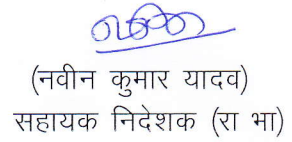 (नवीन कुमार यादव)
सहायक निदेशक (रा भा)